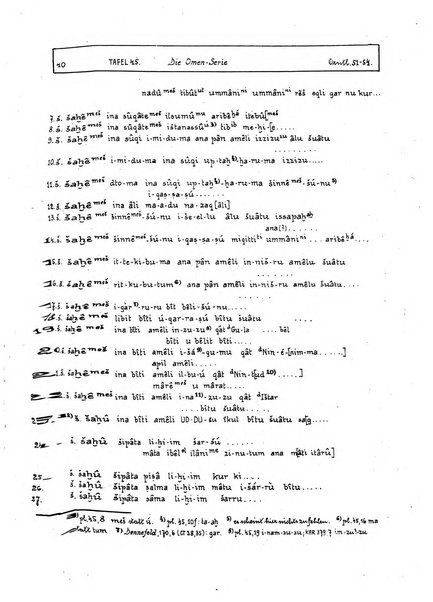 10 TAFEL 45. Die Omen-Serie Cunif. 51-54.
nadū meš tibût ut ummâni ni ummâni ni rêš eqli gar nu kur...
7. š. šaḫê meš ina sûqâte meš ilsumû mu aribê ḫá itebû [meš
8. š. šaḫê meš ina sûqâte meš ištanassû 3) tib ib me-ḫi-[e.....
9. š. šaḫê meš ina sûqi i-mi-du-ma ana pân amêli izzizu zu âlu šuâtu
. . . . . .
10. š. šaḫê meš i-mi-du-ma ina sûqi up-taḫ 4)-ḫa-ru-ma izzizu.....
11. š. šaḫê meš dto-ma ina sûqi up-taḫ 4)-ḫa-ru-ma šinnê meš-šú-nu 5)
i-gaṣ-ṣa-[.....
12. š. šaḫê meš ina âli ma-a-du na-zaq [âli]
13. š. šaḫê meš šinnê meš-šú-nu i-še-el-lu âlu šuâtu issapaḫ aḫ
ana(?).....
14. š. šaḫê meš šinnê meš-šú-nu i-gaṣ-ṣa-ṣú migitti ti ummâni ni ... aribê ḫá....
15. š. šaḫê meš it-te-ki-bu-ma ana pân amêli in-niš-ru amêlu šuâtu
. . . . . . .
16. š. šaḫê meš rit-ku-bu-tum 6) ana pân amêli in-niš-ru amêlu šuâtu
. . . . . . . .
17. š. šaḫê meš i-gàr 7)-ru-ru bît bêli-šú-nu.....
18. š. šaḫê meš libit bîti ú-gar-ra-ṣú bîtu šuâtu
19. š. šaḫê meš ina bîti amêli in-zu-zu 8) qât dGu-la .... bêl
bîti u bêlit bîti....
20. š. šaḫê meš ina bîti amêli i-šá 9)-gu-mu qât dNin-é-[nim-ma .....]
apil amêli.....
21. š. šaḫê meš ina bîti amêli il-bu-ú qât dNin-[ud 10).....]
mârê meš u mârat.....
22. š. šaḫê meš ina bîti amêli i-na 11)-zu-zu qât dIštar
.... bîtu šuâtu....
23. š. šaḫû ina bîti amêli UD-DU-su škul bîtu šuâtu saġ.....
24. š. šaḫû šipâta li-ḫi-im šar-šú .....
mâta ibêl el ilâni me zi-nu-tum ana m[âti itârû]
25. š. šaḫû šipâta piṣâ li-ḫi-im kur ki ....
26. š. šaḫû šipâta ṣalma li-ḫi-im mâtu i-šár-rù bîtu.....
27. š. šaḫû šipâta sâma li-ḫi-im šarru....
pl. 45,8 meš statt ú. 4) pl. 45,10f: ta-aḫ 5) es scheint hier nichts zu fehlen. 6) pl. 45,16 ma
statt tum 7) Dennefeld, 170,6 (CT 28,35): gar. 9) pl. 45,19 i-nam-zu-zu; KAR 379.7 im-zu?-zu